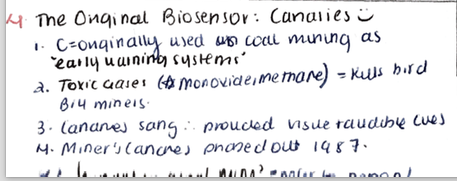 4. The Original Biosensor: Canaries
1. C=originally used in coal mining as
"early warning systems"
2. Toxic Gases (monoxide, methane) = kills bird
B/4 miners.
3. Canaries sang ∴ provided visue + audible cues
4. Miner's Canaries phased out 1987.